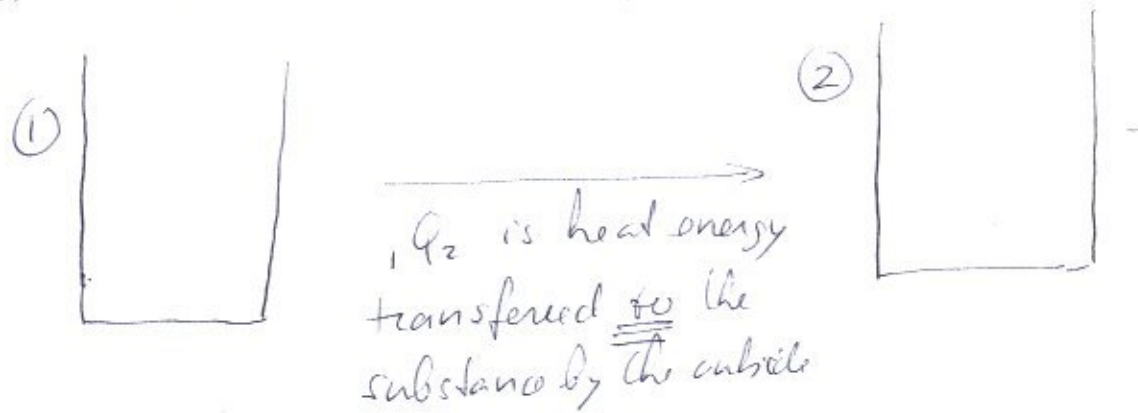 ①
②
₁Q₂ is heat energy
transfered to the
substance by the outside